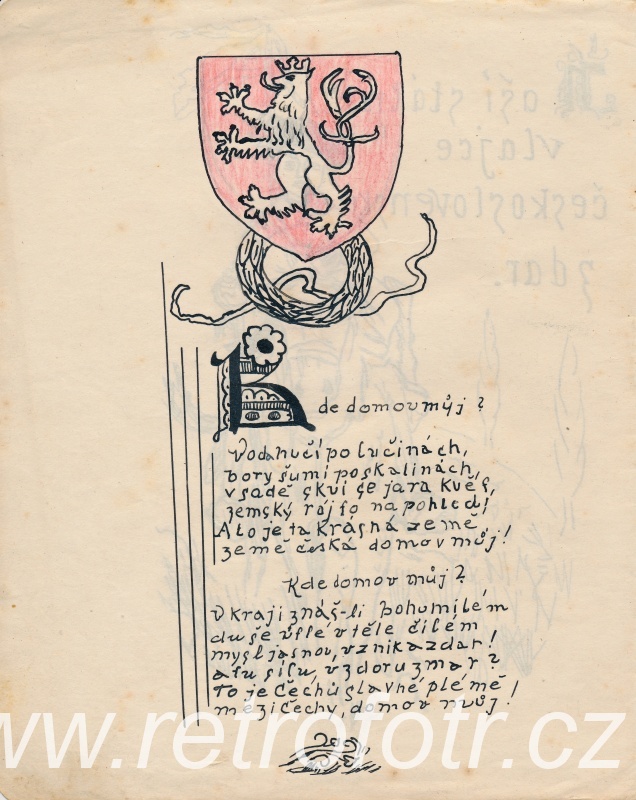 Kde domov můj?
Voda hučí po lučinách,
bory šumí po skalinách,
v sadě skví se jara květ,
zemský ráj to na pohled!
A to je ta krásná země,
země česká domov můj!
Kde domov můj?
V kraji znáš-li bohumilém
duše útlé v těle čilém
mysl jasnou, vznik a zdar!
a tu sílu, vzdoru zmar?
To je Čechů slavné plémě
mezi Čechy, domov můj!
www.retrofotr.cz